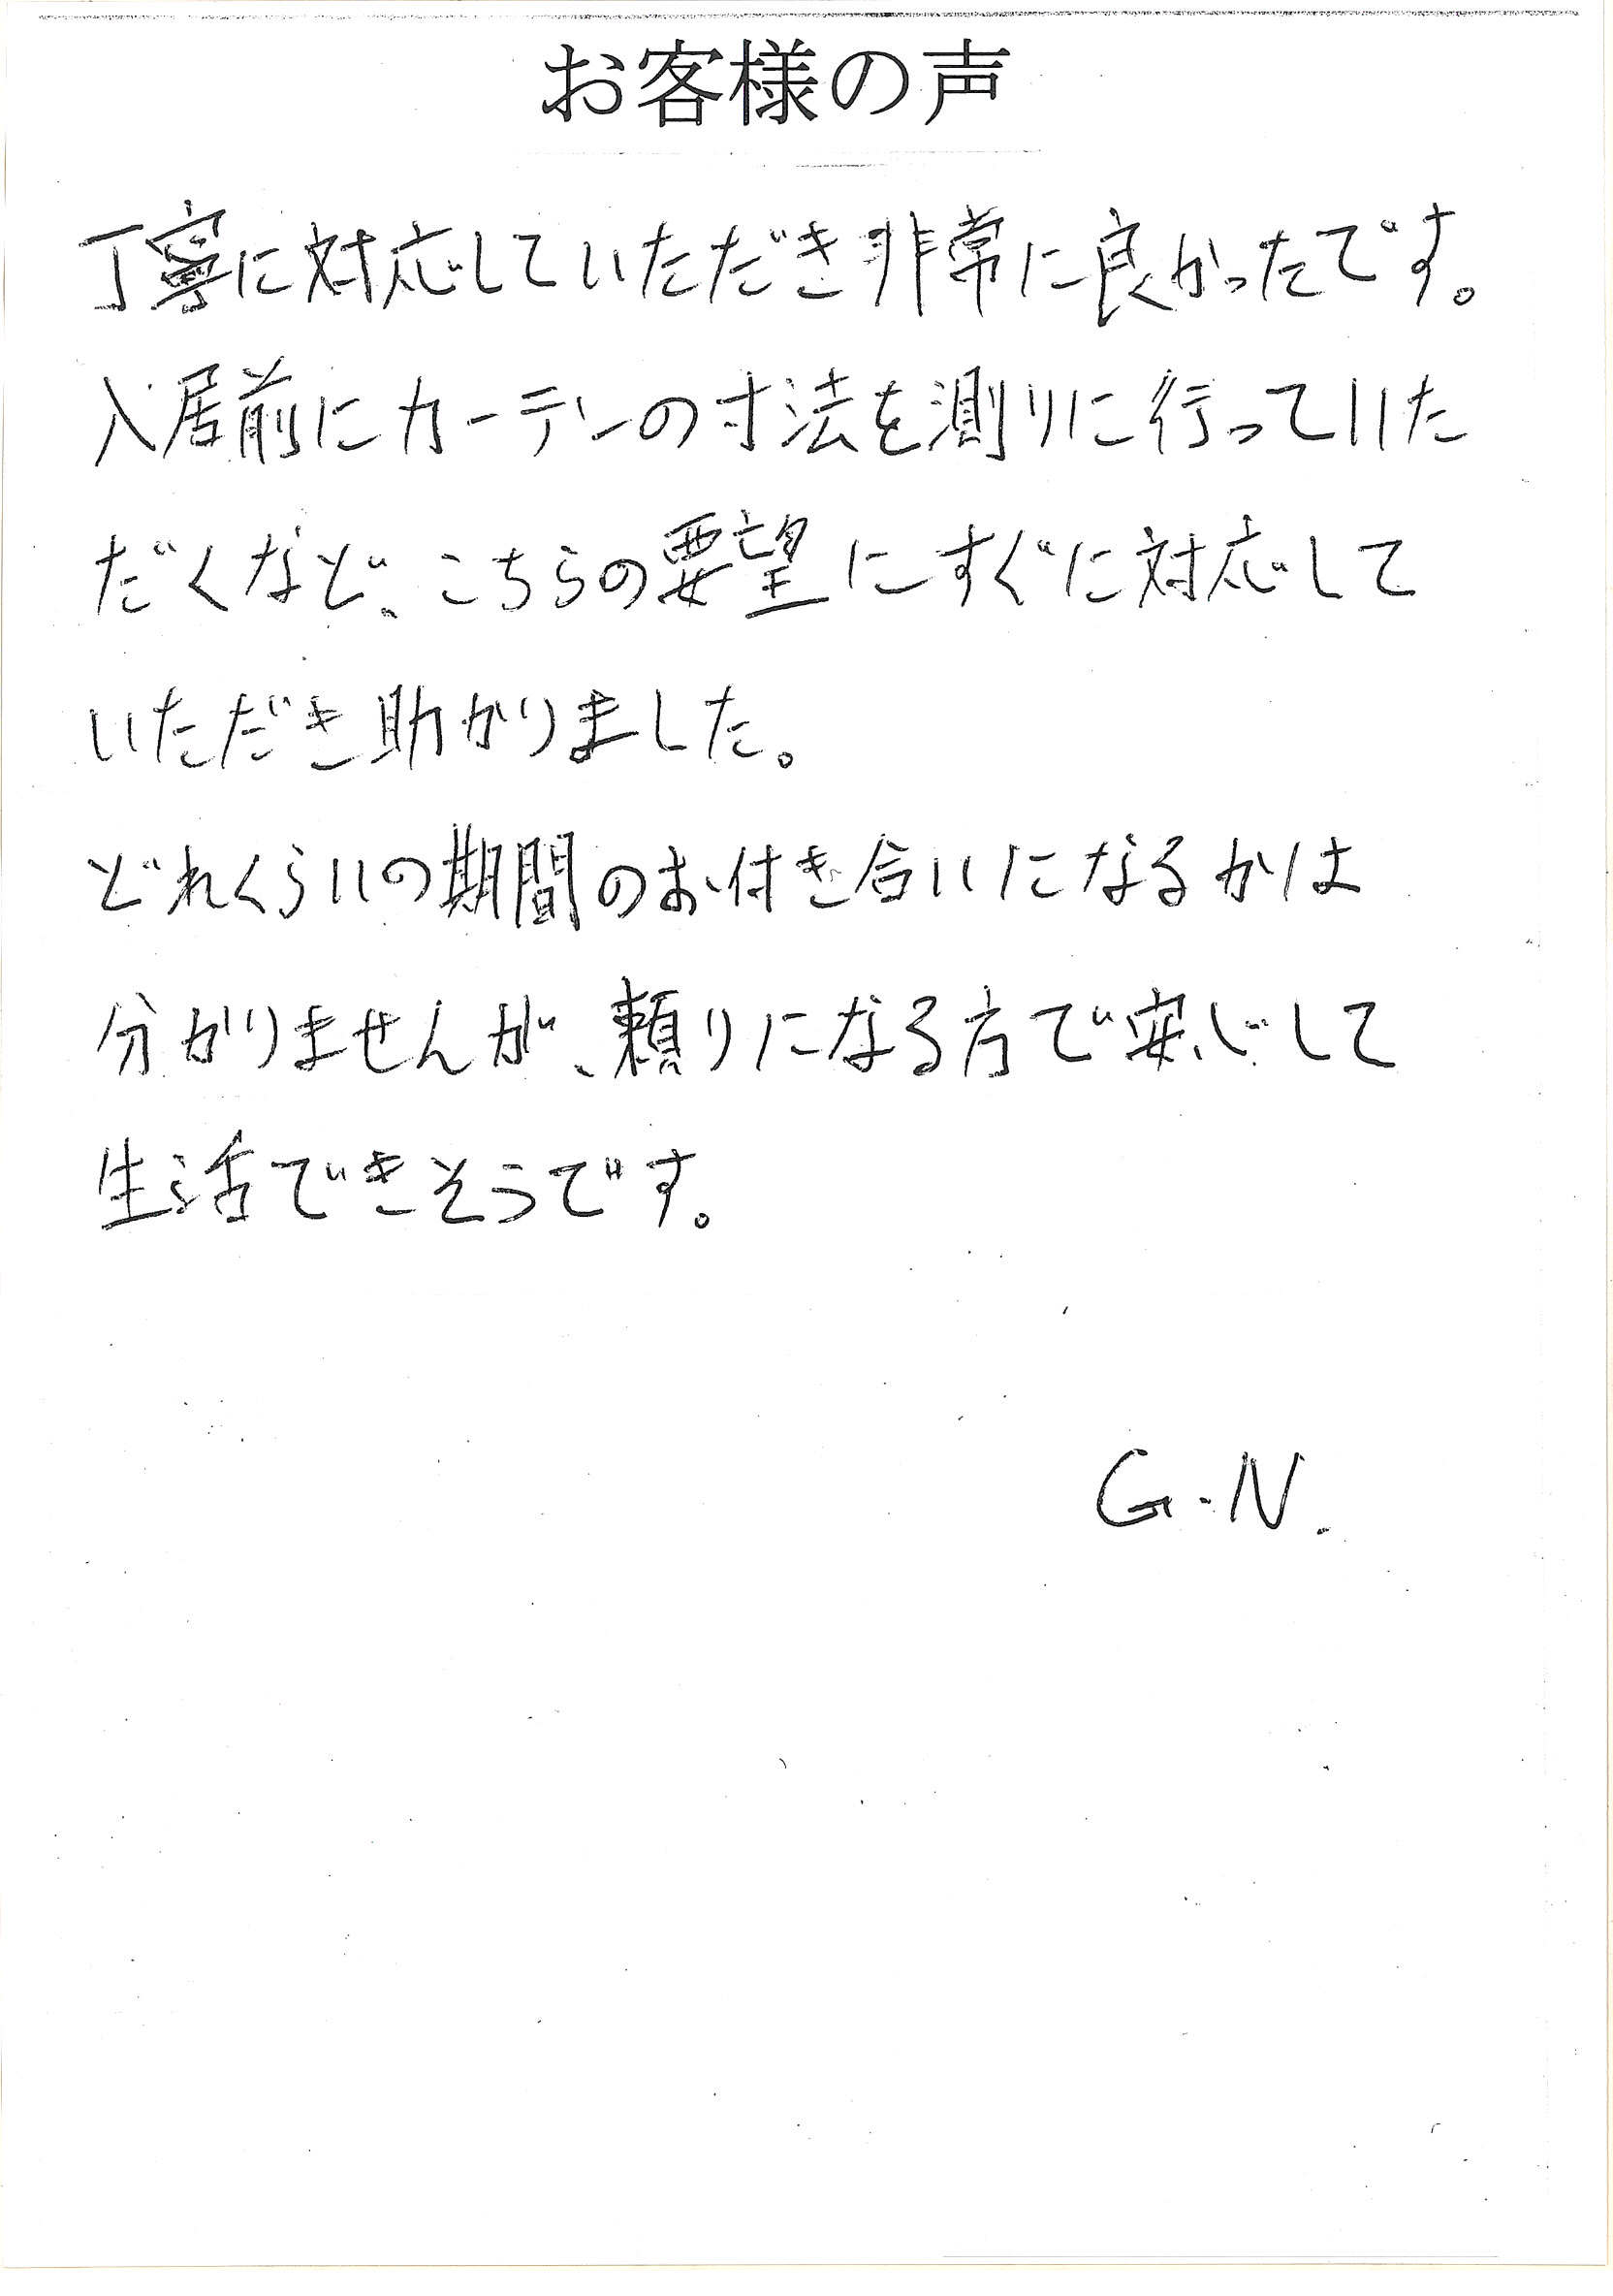 お客様の声
丁寧に対応していただき非常に良かったです。
入居前にカーテンの寸法を測りに行っていた
だくなど、こちらの要望にすぐに対応して
いただき助かりました。
どれくらいの期間のお付き合いになるかは
分かりませんが、頼りになる方で安心して
生活できそうです。
G.N.